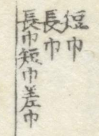 短巾
長巾
長巾短巾差巾